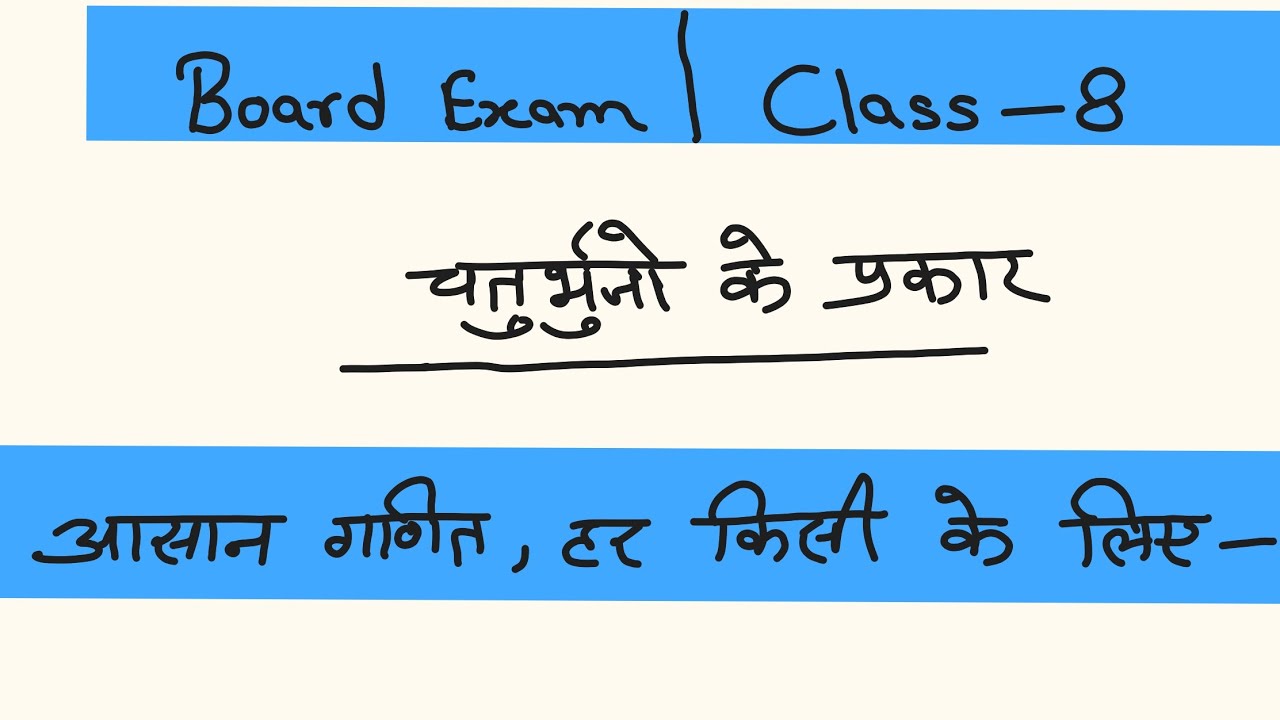 Board Exam | Class - 8
चतुर्भुजो के प्रकार
आसान गणित, हर किसी के लिए -